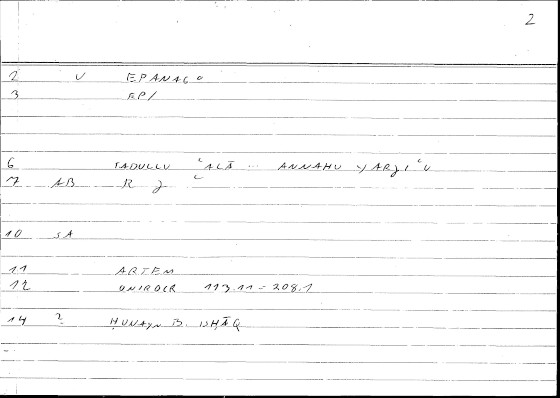 2
2 U EPANAGO
3 EPI
6 TADULLU ʿALĀ ... ANNAHU YARJIʿU
7 AB R J ʿ
10 SA
11 ARTEM
12 ONIROCR 113.11 = 208.1
14 ? ḤUNAYN B. ISḤĀQ